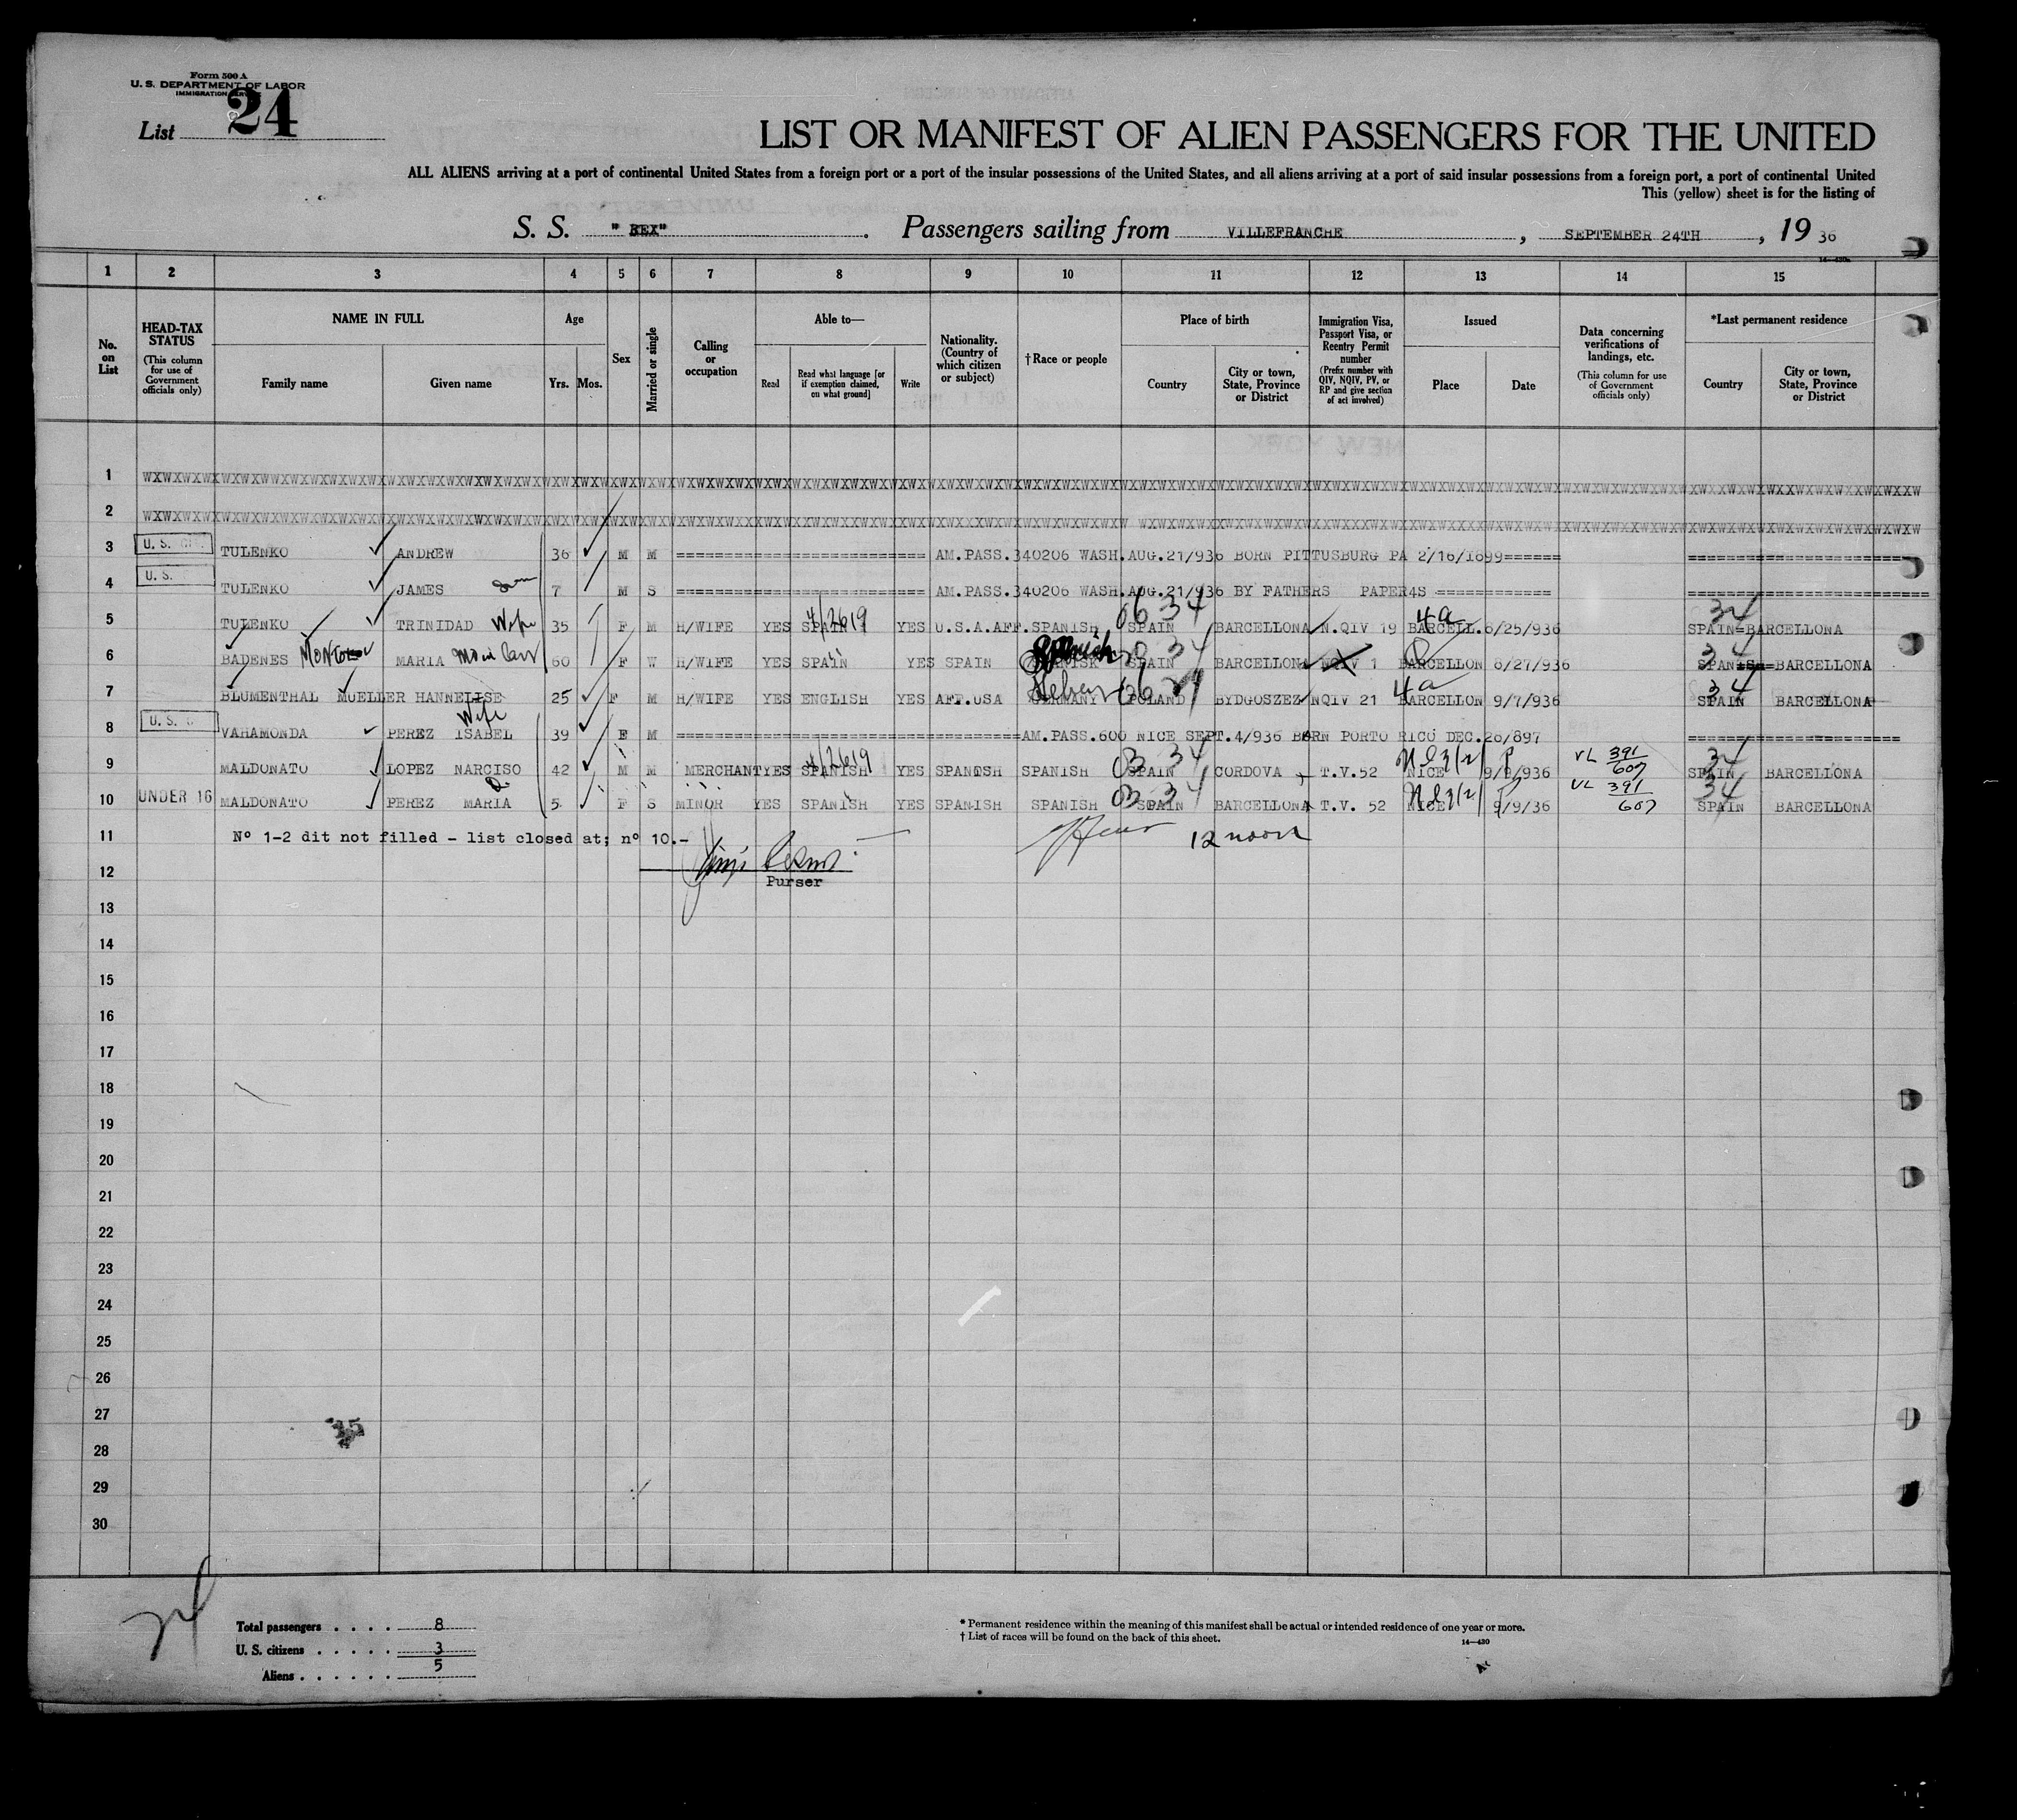 Form 500 A
U. S. DEPARTMENT OF LABOR
IMMIGRATION
List 24
LIST OR MANIFEST OF ALIEN PASSENGERS FOR THE UNITED
ALL ALIENS arriving at a port of continental United States from a foreign port or a port of the insular possessions of the United States, and all aliens arriving at a port of said insular possessions from a foreign port, a port of continental United
This (yellow) sheet is for the listing of
S. S. " REX" . Passengers sailing from VILLEFRANCHE , SEPTEMBER 24TH , 19 36
1 2 3 4 5 6 7 8 9 10 11 12 13 14 15
No. on List
HEAD-TAX STATUS
(This column for use of Government officials only)
NAME IN FULL
Family name
Given name
Age
Yrs.
Mos.
Sex
Married or single
Calling or occupation
Able to—
Read
Read what language [or if exemption claimed, on what ground]
Write
Nationality. (Country of which citizen or subject)
†Race or people
Place of birth
Country
City or town, State, Province or District
Immigration Visa, Passport Visa, or Reentry Permit number
(Prefix number with QIV, NQIV, PV, or RP and give section of act involved)
Issued
Place
Date
Data concerning verifications of landings, etc.
(This column for use of Government officials only)
*Last permanent residence
Country
City or town, State, Province or District
1
2
3 U. S. TULENKO ANDREW 36 M M AM.PASS.340206 WASH.AUG.21/936 BORN PITTUSBURG PA 2/16/1899======
4 U. S. TULENKO JAMES son 7 M S AM.PASS.340206 WASH.AUG.21/936 BY FATHERS PAPER4S
5 TULENKO TRINIDAD Wife 35 F M H/WIFE YES SPAIN 4/2619 YES U.S.A.AFF.SPANISH SPAIN 06 34 BARCELLONA N.QIV 19 4a BARCELL.8/25/936 34 SPAIN=BARCELLONA
6 BADENES MARIA 60 F W H/WIFE YES SPAIN YES SPAIN Spanish SPAIN 34 BARCELLONA NQIV 1 BARCELLON 8/27/936 34 BARCELLONA
7 BLUMENTHAL MUELLER HANNELISE 25 F M H/WIFE YES ENGLISH YES AFF.USA Hebrew GERMANY POLAND BYDGOSZEZ NQIV 21 4a BARCELLON 9/7/936 34 SPAIN BARCELLONA
8 U. S. VAHAMONDA PEREZ ISABEL Wife 39 F M AM.PASS.600 NICE SEPT.4/936 BORN PORTO RICO DEC.26/897
9 MALDONATO LOPEZ NARCISO 42 M M MERCHANT YES SPANISH 4/2619 YES SPANISH SPANISH SPAIN 03 34 CORDOVA T.V.52 NICE 9/9/936 VL 391/607 34 SPAIN BARCELLONA
10 UNDER 16 MALDONATO PEREZ MARIA D. 5 F S MINOR YES SPANISH YES SPANISH SPANISH SPAIN 03 34 BARCELLONA T.V. 52 NICE 9/9/36 VL 391/607 34 SPAIN BARCELLONA
11 Nº 1-2 dit not filled - list closed at; nº 10.- 12 noon
12 Purser
13
14
15
16
17
18
19
20
21
22
23
24
25
26
27
28
29
30
24
Total passengers . . . . 8
U. S. citizens . . . . . 3
Aliens . . . . . . 5
* Permanent residence within the meaning of this manifest shall be actual or intended residence of one year or more.
† List of races will be found on the back of this sheet.
14—430